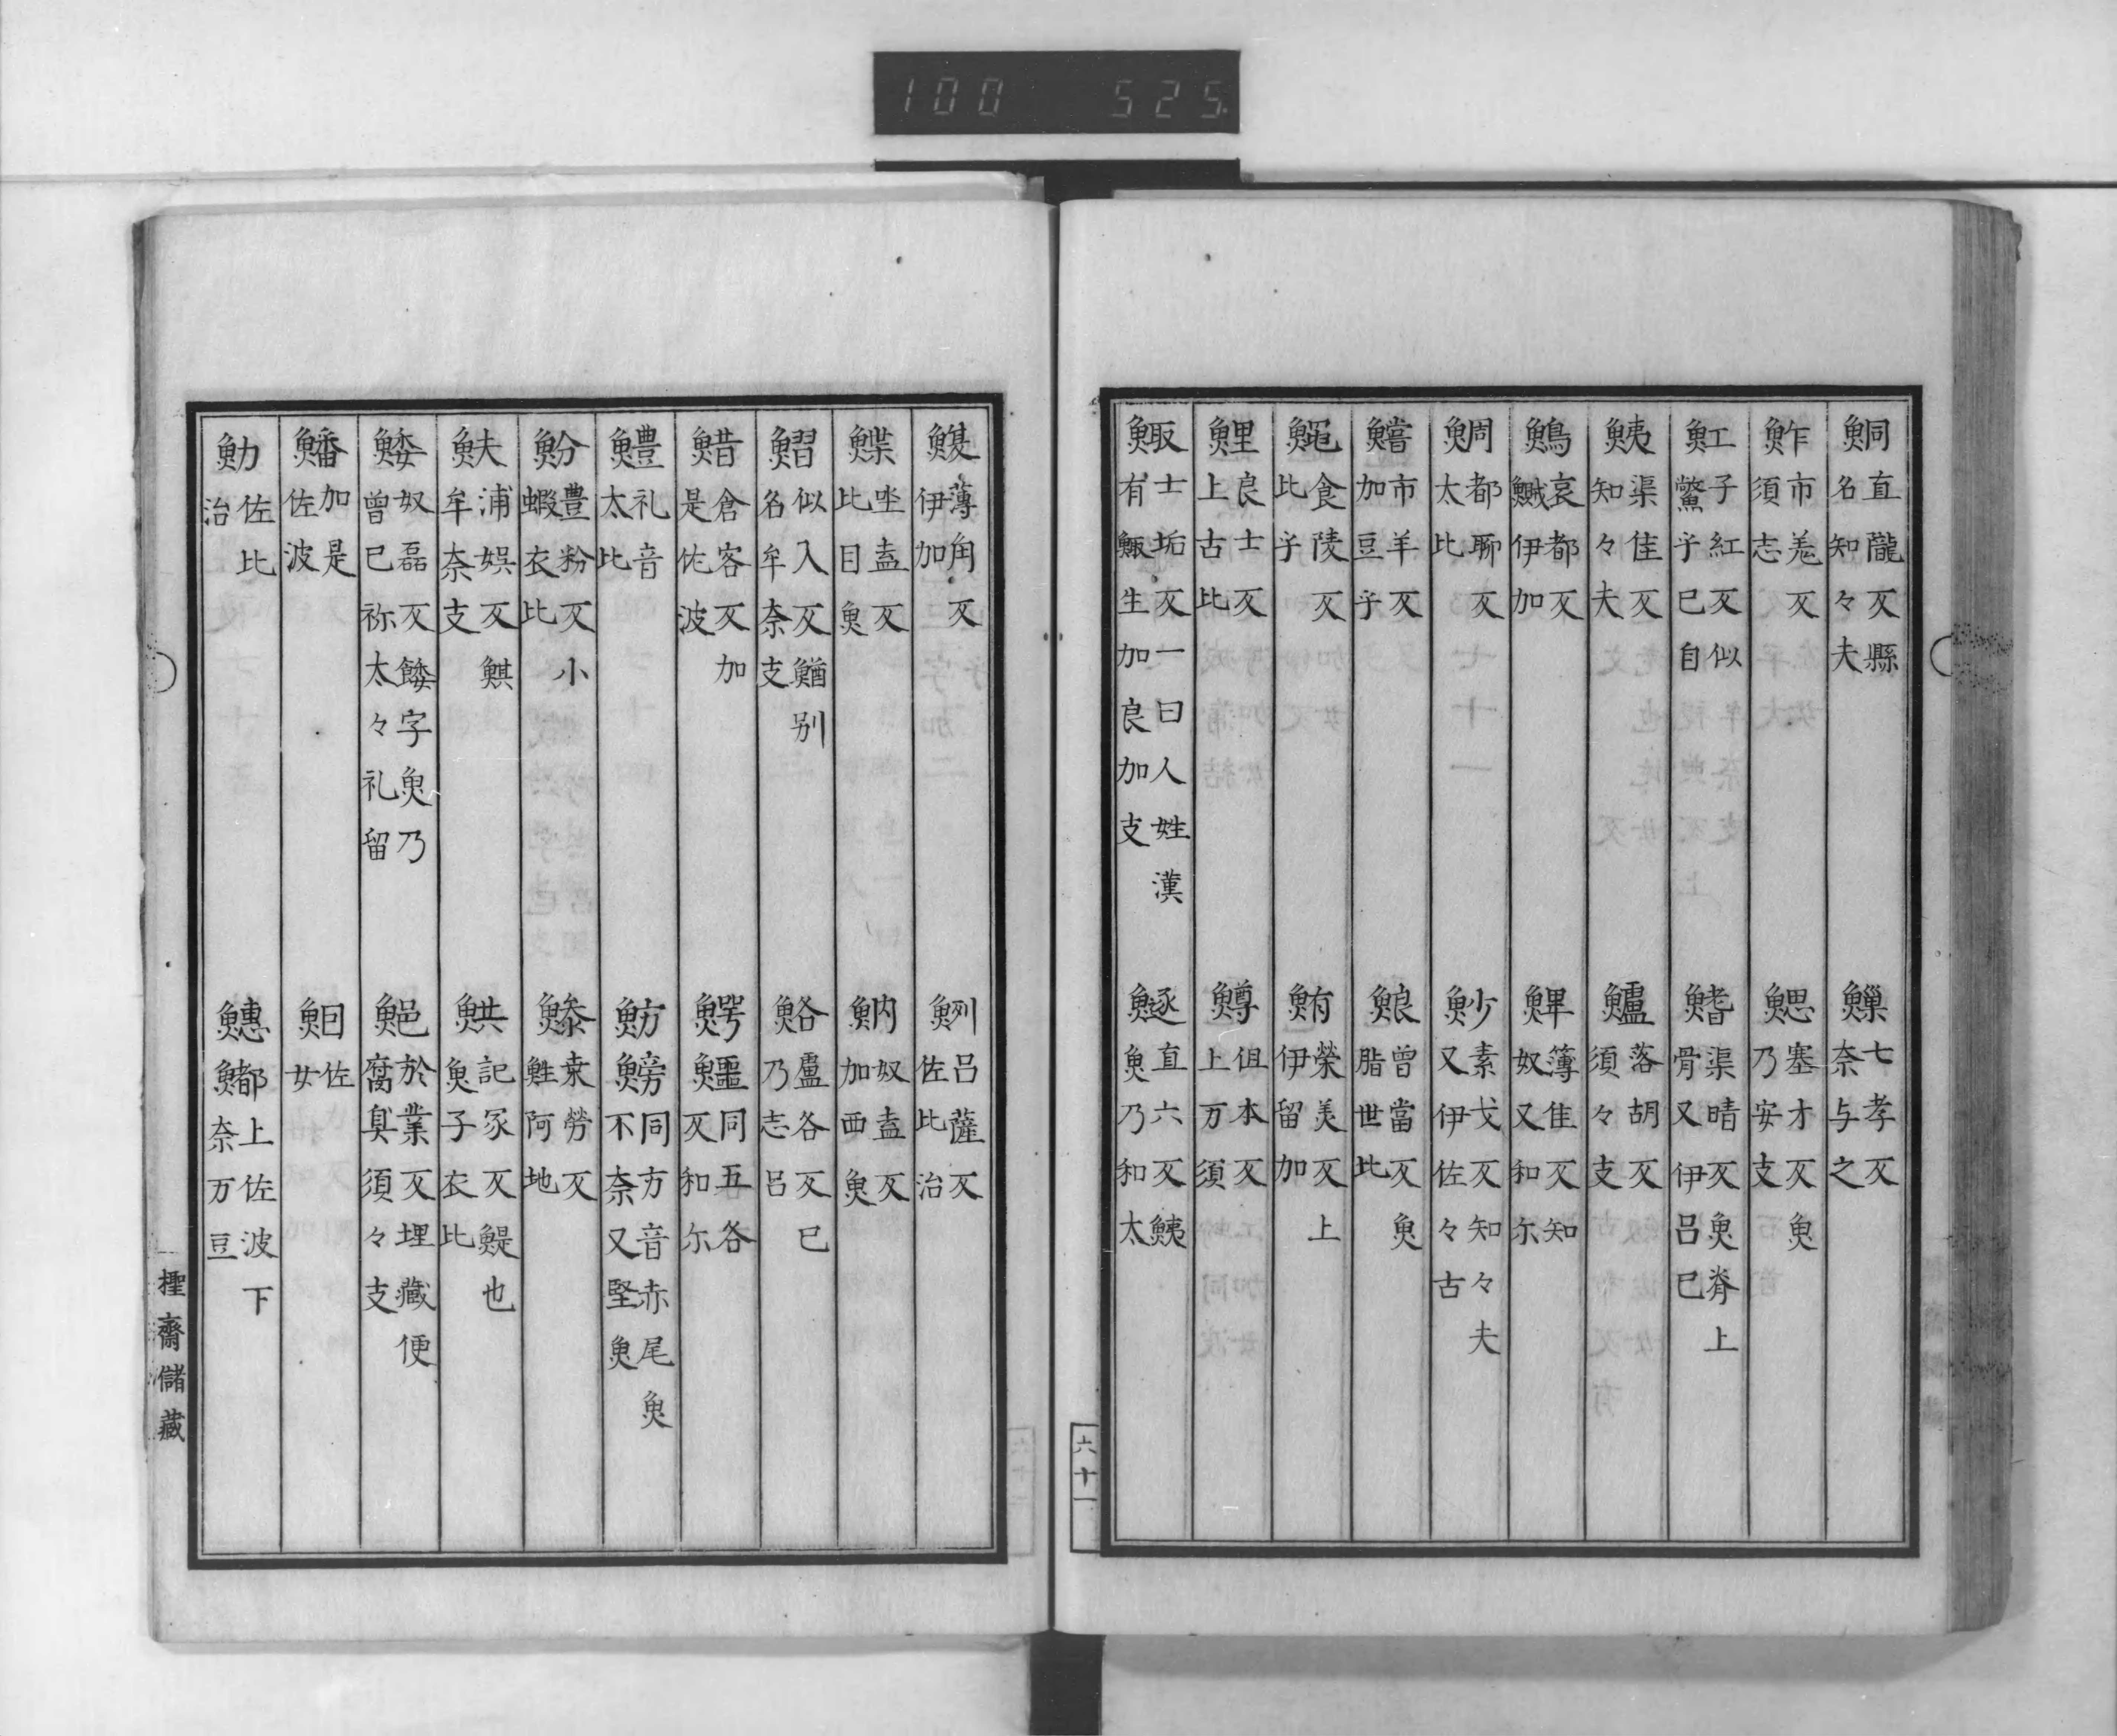 100 525
鮦直隴反縣名知々夫
鰈七孝反奈与之
鮓市羌反須志
鰓塞才反魚乃安支
魟子紅反似鱉子巳自
鰭渠晴反魚脊上骨又伊呂巳
鮧渠隹反知々夫
鱸落胡反須々支
鰞哀都反鰂伊加
鮮簿隹反知奴又和尓
鯛都聊反太比
魦素戈反知々夫又伊佐々古
鱨市羊反加豆乎
鯁曾當反魚脂世比
鱦食陵反比乎
鮪榮美反上伊留加
鯉良士反上古比
鱒徂本反上万須
鯫士垢反一曰人姓漢有鯫生加良加支
鱁直六反鮧魚乃和太
六十一
鰒薄角反伊加
鮤呂薩反佐比治
鰈㘴盍反比目魚
魶奴盍反加西魚
鰼似入反鰌别名牟奈支
鮥盧各反巳乃志呂
鯌倉客反加是佐波
鰐鱷同五各反和尓
鱧礼音太比
魴鰟同方音赤尾魚不奈又堅魚
魵豊粉反小蝦衣比
鰺桒勞反鮏阿地
鮇浦娯反鯕牟奈支
䱋記冢反鯷也魚子衣比
鯘奴磊反餧字魚乃曾巳祢太々礼留
䱒於業反埋藏便腐臭須々支
鱕加是佐波
䱅佐女
魜佐比治
鏸䱜上佐波下奈万豆
㮡齋儲藏